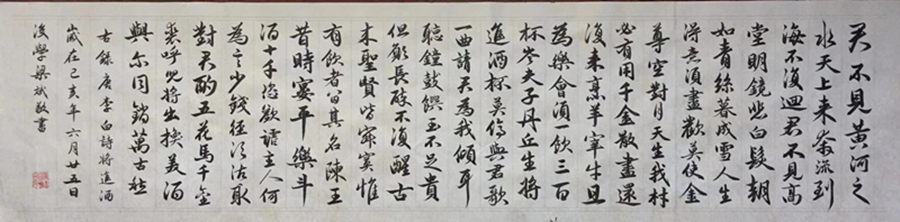 君不見黃河之
水天上来奔流到
海不復迴君不見高
堂明鏡悲白髮朝
如青絲暮成雪人生
得意須盡歡莫使金
尊空對月天生我材
必有用千金散盡還
復来烹羊宰牛且
為樂會須一飲三百
杯岑夫子丹丘生將
進酒杯莫停與君歌
一曲請君為我傾耳
聽鐘鼓饌玉不足貴
但願長醉不復醒古
来聖賢皆寂寞惟
有飲者留其名陳王
昔時宴平樂斗
酒十千恣歡謔主人何
為言少錢徑須沽取
對君酌五花馬千金
裘呼兒將出換美酒
與尔同銷萬古愁
古錄唐李白詩將進酒
歲在己亥年六月廿五日
後學梁斌敬書